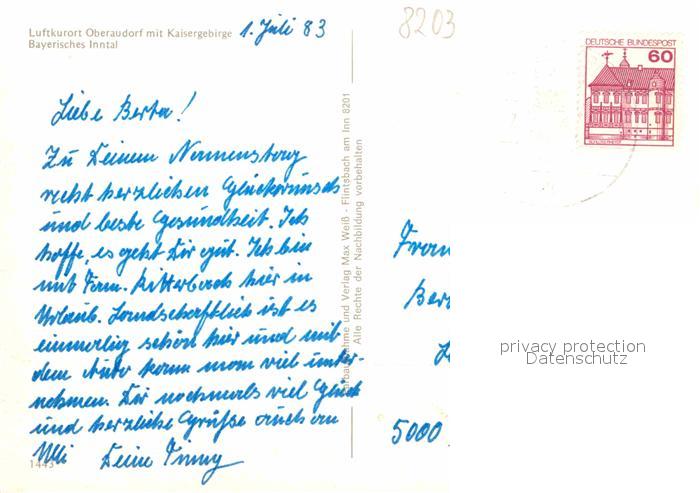 Luftkurort Oberaudorf mit Kaisergebirge
Bayerisches Inntal
1. Juli 83
8203
DEUTSCHE BUNDESPOST
60
Liebe Berta!
Zu Deinem Namenstag
recht herzlichen Glückwunsch
und beste Gesundheit. Ich
hoffe, es geht Dir gut. Ich bin
mit Fam. Ritterbach hier in
Urlaub. Landschaftlich ist es
einmalig schön hier und mit
dem Auto kann man viel unter-
nehmen. Dir nochmals viel Glück
und herzliche Grüße auch an
Ulli Deine
1443
Verlag Max Weiß · Flintsbach am Inn 8201
Alle Rechte der Nachbildung vorbehalten
5000
privacy protection
Datenschutz